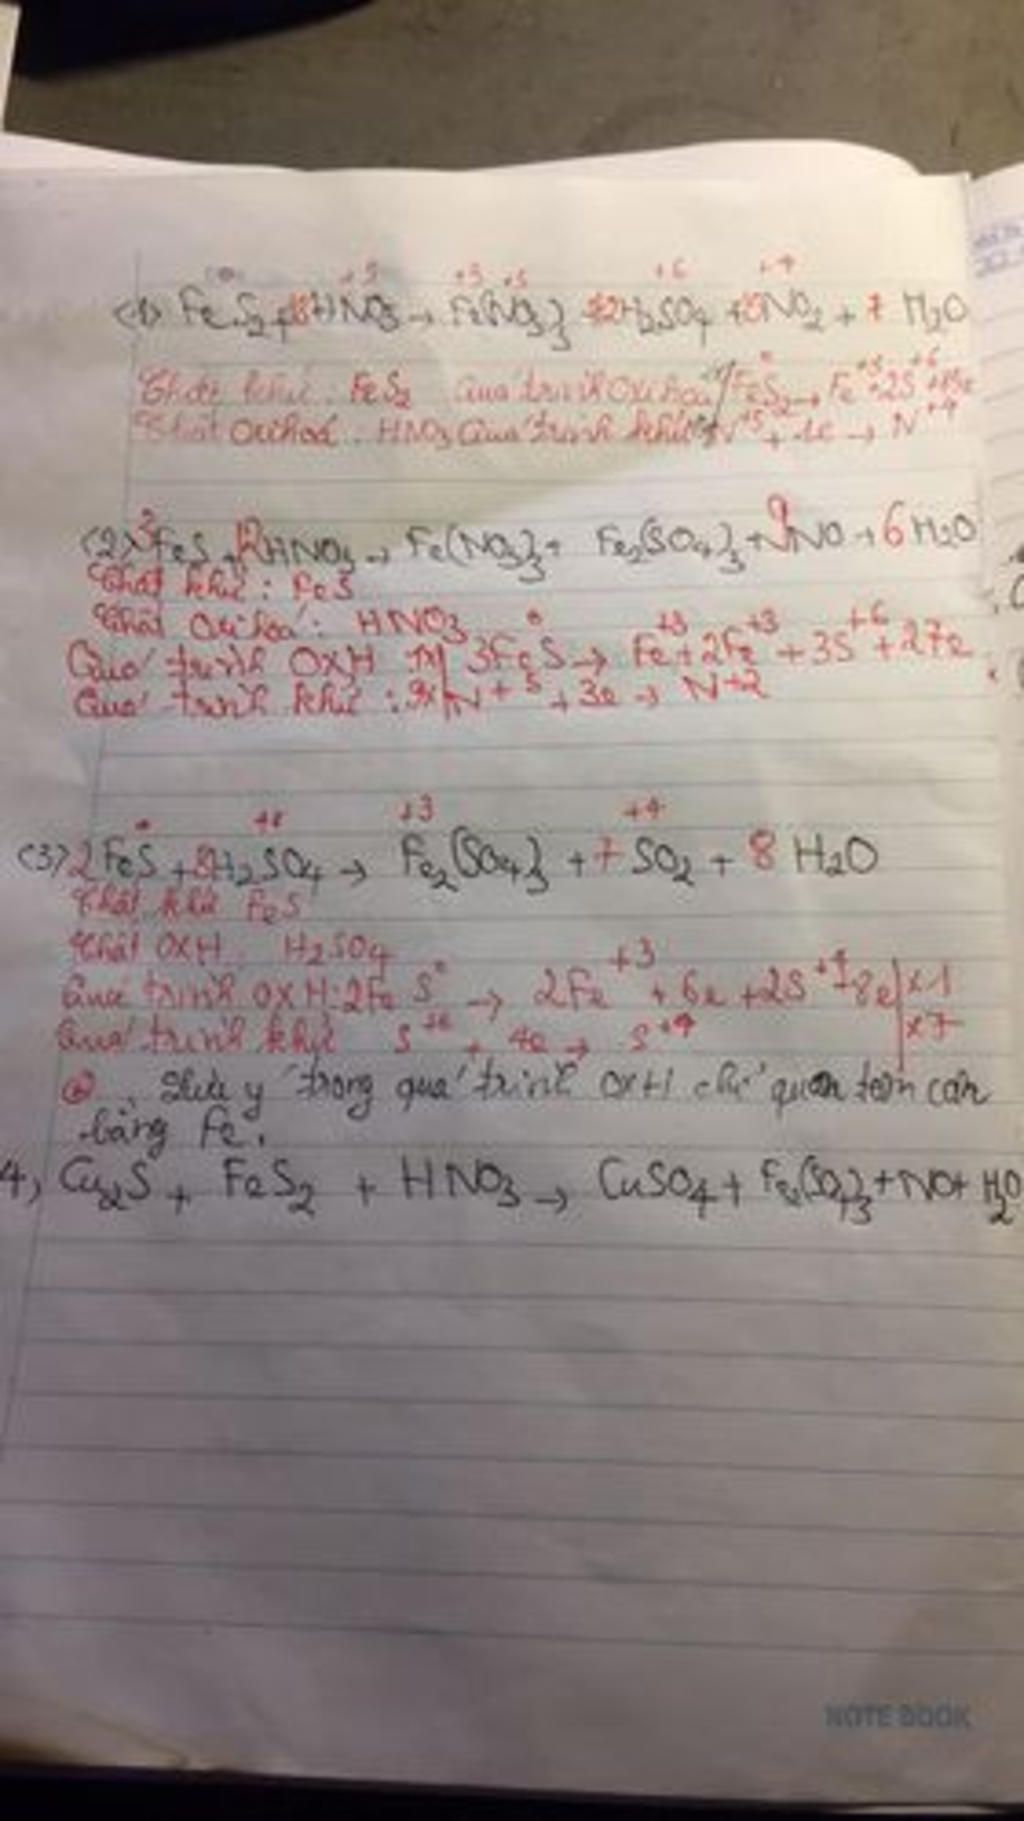 (1) FeS2 + 18HNO3 → Fe(NO3)3 + 2H2SO4 + 15NO2 + 7 H2O
Chất khử: FeS2 Quá trình Oxi hoá 1x| FeS2 → Fe+3 + 2S+6 + 15e
Chất Oxi hoá: HNO3 Quá trình khử N+5 + 1e → N+4
(2) 3FeS + 12HNO3 → Fe(NO3)3 + Fe2(SO4)3 + 9NO + 6H2O
Chất khử: FeS
Chất Oxi hoá: HNO3
Quá trình OXH 1x| 3FeS → Fe+3 + 2Fe+3 + 3S+6 + 27e
Quá trình khử: 9x| N+5 + 3e → N+2
(3) 2FeS + H2SO4 → Fe2(SO4)3 + 7 SO2 + 8 H2O
Chất khử FeS
Chất OXH: H2SO4
Quá trình OXH: 2FeS → 2Fe+3 + 6e + 2S+4 + 8e | x1
Quá trình khử S+6 + 4e → S+4 | x7
Lưu ý trong quá trình OXH chỉ quan tâm cân
bằng Fe.
4) Cu2S + FeS2 + HNO3 → CuSO4 + Fe2(SO4)3 + NO + H2O
NOTE BOOK